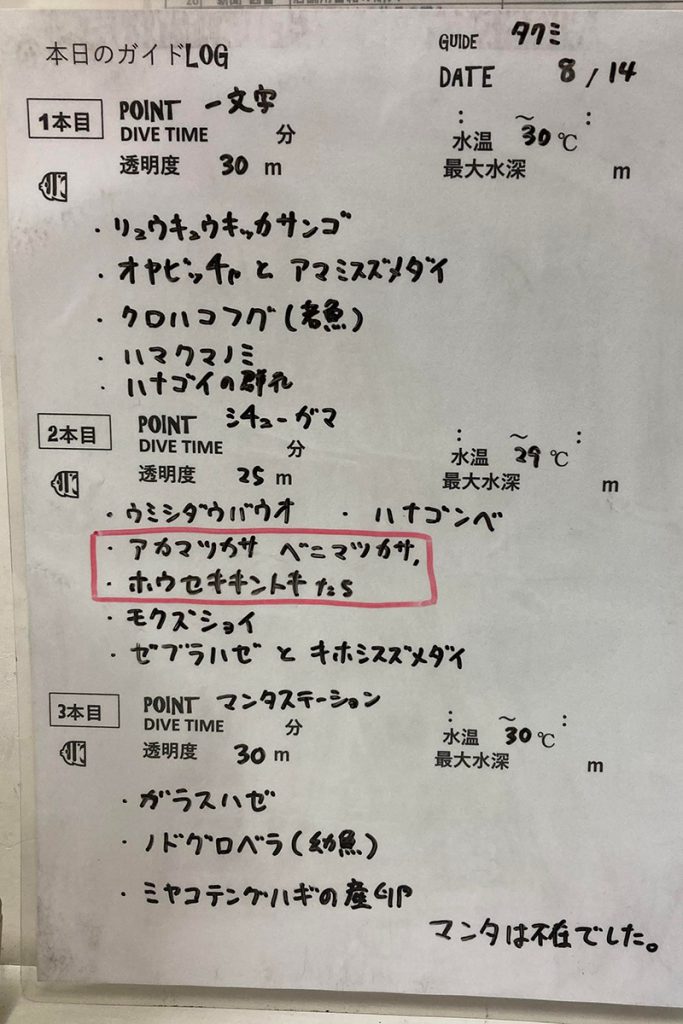 本日のガイドLOG
GUIDE タクミ
DATE 8/14
1本目 POINT 一文字
DIVE TIME 分 : ～ :
透明度 30 m 水温 30℃
最大水深 m
・リュウキュウキッカサンゴ
・オヤビッチャと アマミスズメダイ
・クロハコフグ(若魚)
・ハマクマノミ
・ハナゴイの群れ
2本目 POINT シチューガマ
DIVE TIME 分 : ～ :
透明度 25 m 水温 29℃
最大水深 m
・ウミシダウバウオ ・ハナゴンベ
・アカマツカサ ベニマツカサ,
・ホウセキキントキたち
・モクズショイ
・ゼブラハゼと キホシスズメダイ
3本目 POINT マンタステーション
DIVE TIME 分 : ～ :
透明度 30 m 水温 30℃
最大水深 m
・ガラスハゼ
・ノドグロベラ(幼魚)
・ミヤコテングハギの産卵
マンタは不在でした。